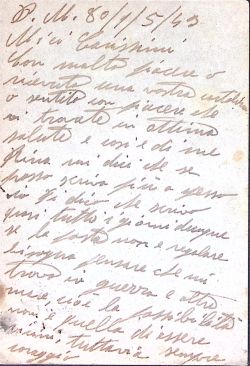 P. M. 80/1/5/43
Miei Carissimi
Con molto piacere o
ricevuto una vostra cartolina
o sentito con piacere che
vi trovate in ottima
salute e così è di me
Rina mi dici che se
posso scriva più a spesso
io Ti dico che scrivo
quasi tutti i giorni dunque
se la posta non è regolare
bisogna pensare che mi
trovo in guerra e altro
mece cioè la possibilità
non è quella di essere
vicini tuttavia sempre
coraggio